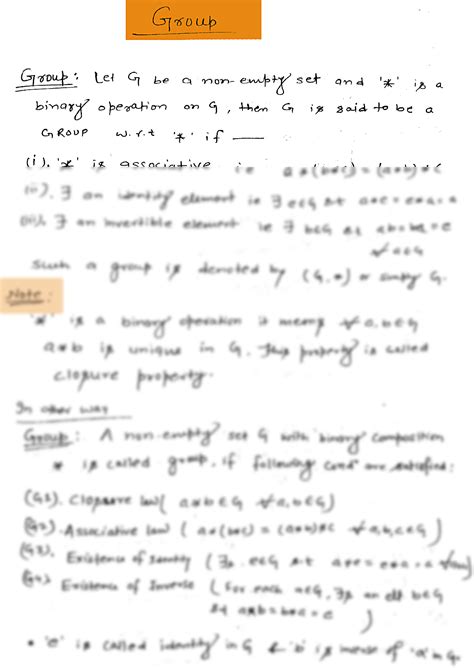 Group
Group: Let G be a non-empty set and '*' is a
binary operation on G, then G is said to be a
GROUP w.r.t '*' if —
(i). '*' is associative i.e a*(b*c) = (a*b)*c
(ii). ∃ an identity element ie ∃ e∈G s.t a*e = e*a = a
(iii). ∃ an invertible element ie ∃ b∈G st ab = ba = e
∀ a∈G
Such a group is denoted by (G,*) or simply G.
Note:
'*' is a binary operation it means ∀ a,b∈G
a*b is unique in G. This property is called
closure property.
In other way
Group: A non-empty set G with binary composition
* is called group, if following cond are satisfied:
(G1). Closure law (a*b∈G ∀ a,b∈G)
(G2). Associative law (a*(b*c) = (a*b)*c ∀ a,b,c∈G)
(G3). Existence of Identity (∃ e∈G s.t a*e = e*a = a
(G4). Existence of Inverse (for each a∈G, ∃ an elt b∈G
s.t a*b = b*a = e)
• 'e' is called identity in G & 'b' is inverse of 'a' in G.